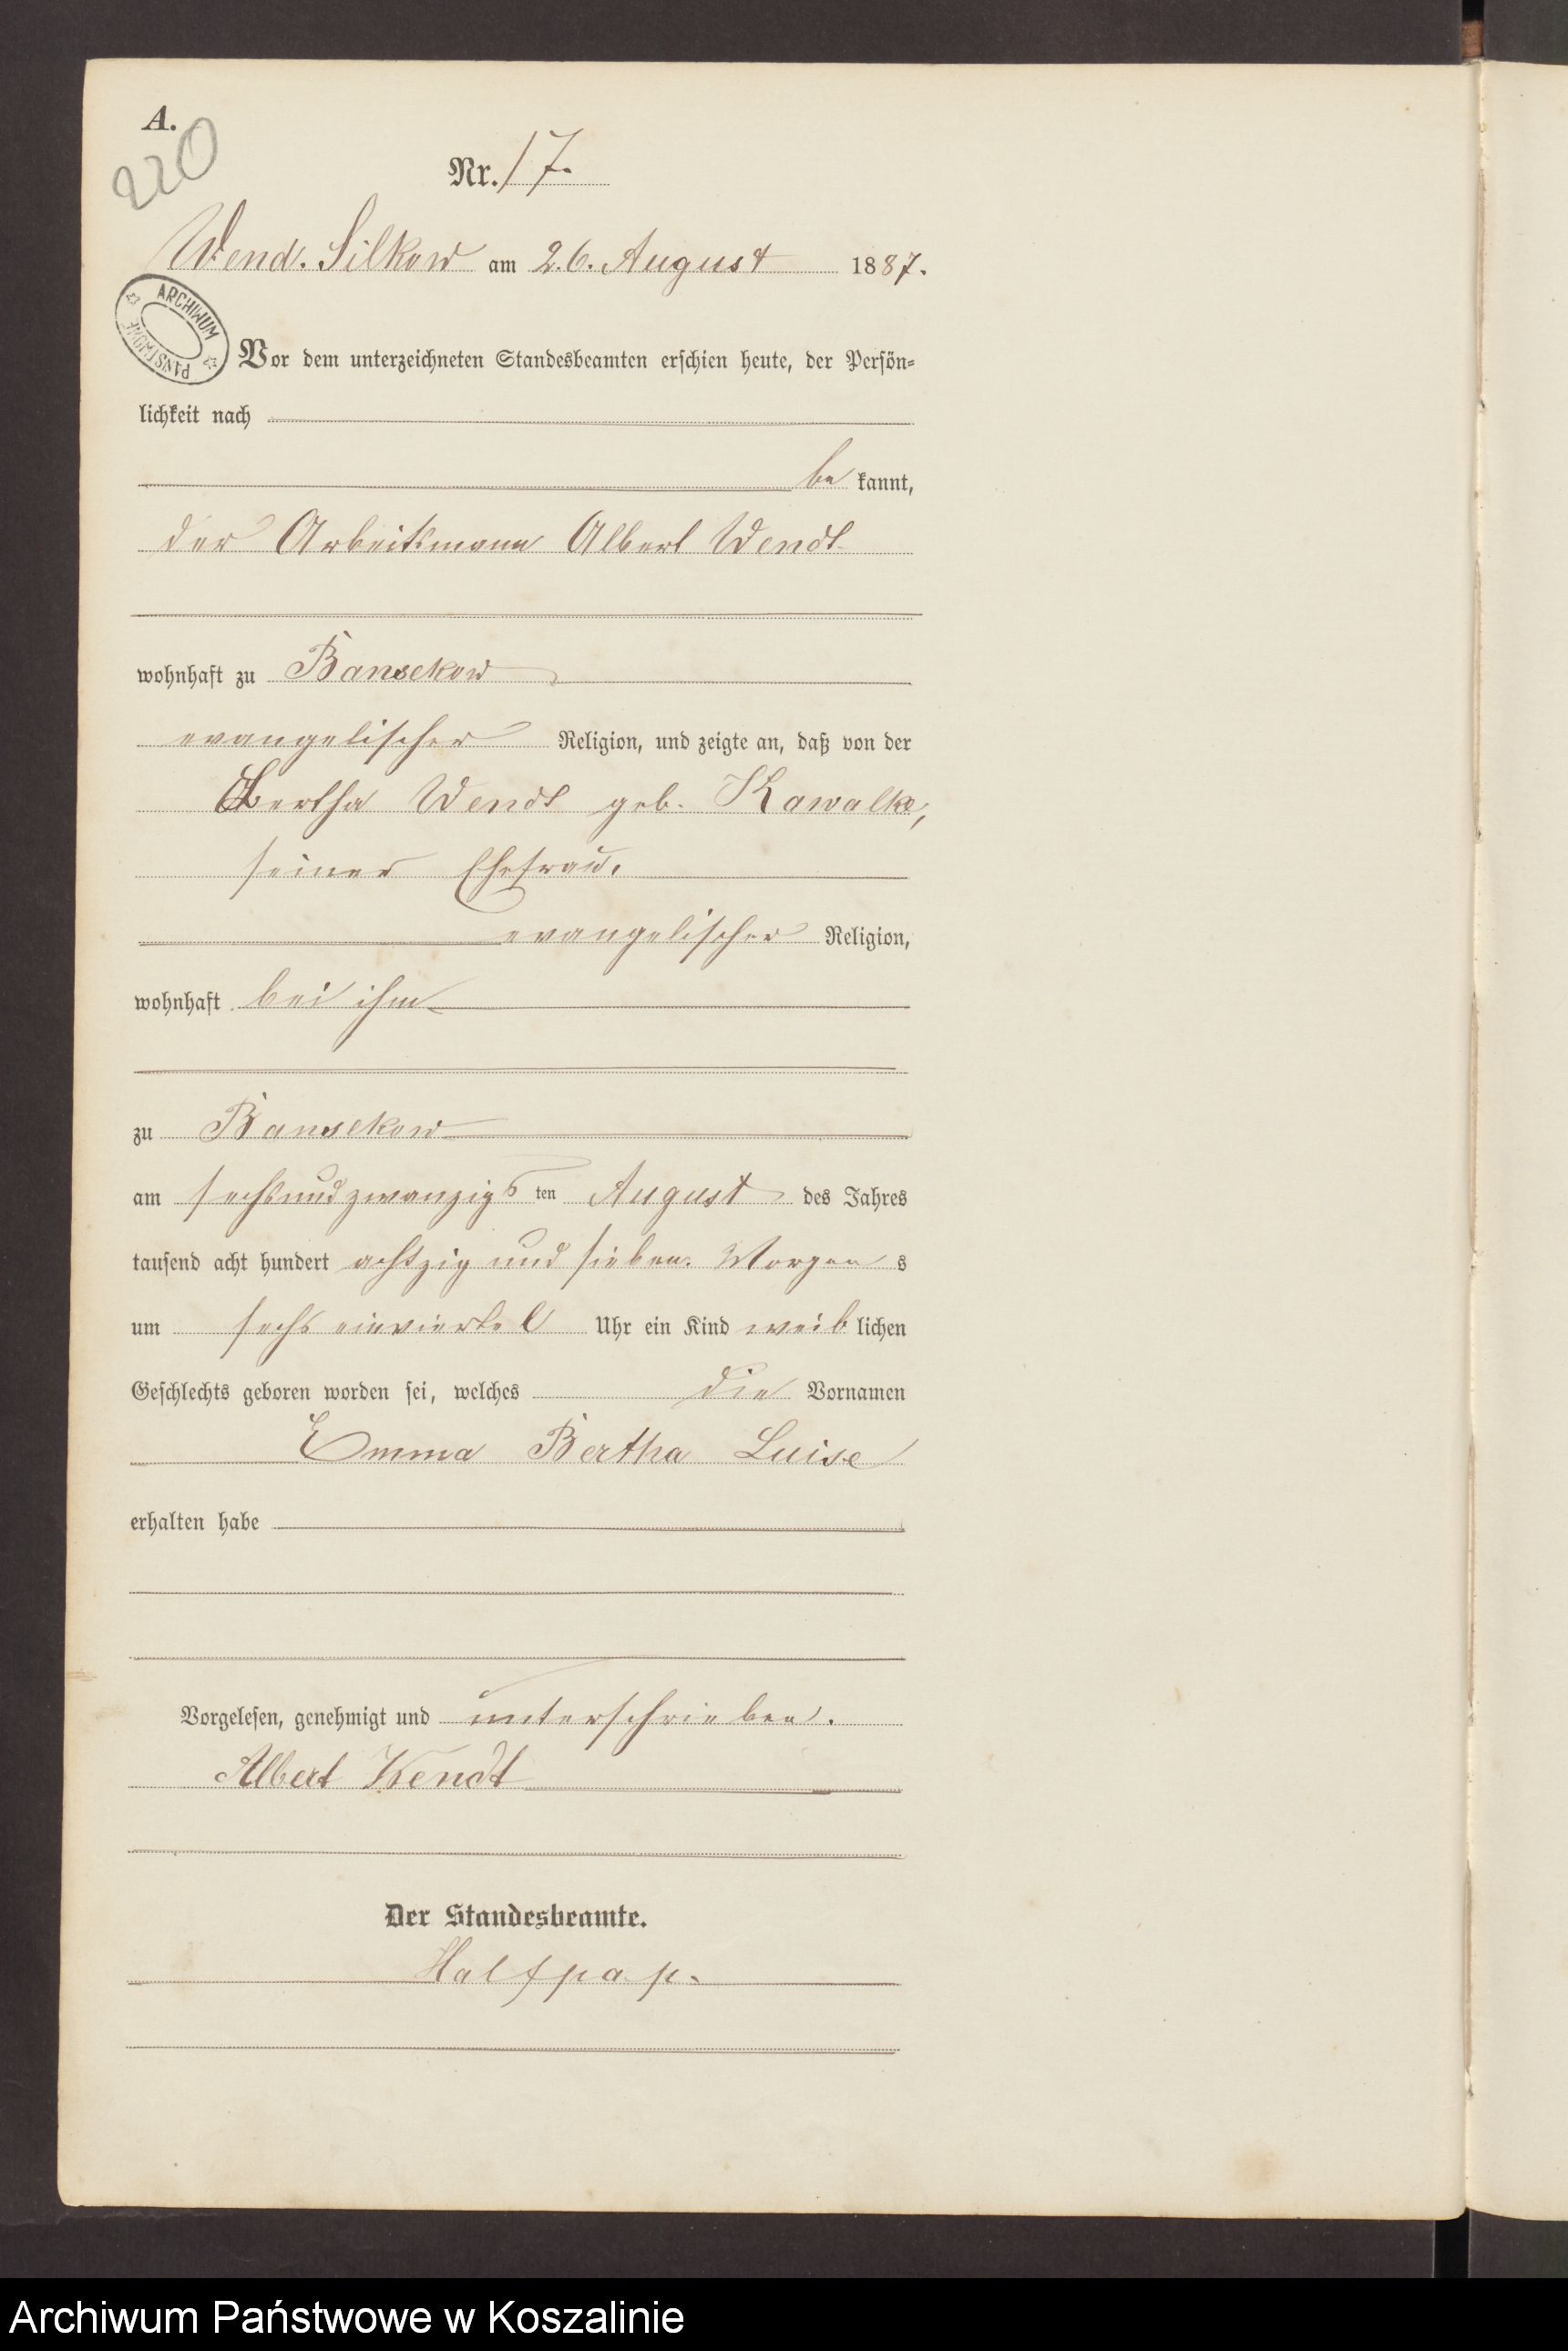 A.
220
Nr. 17.
Wend. Silkow am 26. August 1887.
ARCHIWUM PAŃSTWOWE
Vor dem unterzeichneten Standesbeamten erschien heute, der Persön-
lichkeit nach
be kannt,
der Arbeitsmann Albert Wendt
wohnhaft zu Bansekow
evangelischer Religion, und zeigte an, daß von der
Bertha Wendt geb. Kawalk,
seiner Ehefrau.
evangelischer Religion,
wohnhaft bei ihm
zu Bansekow
am sechsundzwanzigs ten August des Jahres
tausend acht hundert achtzig und sieben. Morgen s
um sechs einviertel Uhr ein Kind weib lichen
Geschlechts geboren worden sei, welches die Vornamen
Emma Bertha Luise
erhalten habe
Vorgelesen, genehmigt und unterschrieben.
Albert Wendt
Der Standesbeamte.
Halfpap.
Archiwum Państwowe w Koszalinie